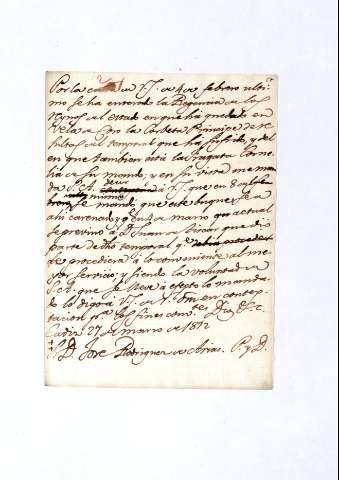 Por la carta de V.S. de 4 de febrero ulti-
mo se ha enterado la Regencia de los
reynos del estado en que ha quedado en
Vela de Cro la Corbeta Principe de re-
sultas del temporal que ha sufrido, y del
en que tambien está la fragata Corne-
lia de su mando, y en su vista me man-
da S.A. decir á V.S. que en 8 de
se mandó que este buque sea
ahi carenado, y en 4 de marzo que actual
se previno á D. Juan de que dio
parte de dho temporal
de procediera á lo conveniente al me-
jor servicio; y siendo la voluntad de
S.A. que se lleve á efecto lo manda-
do lo digo á V.S. de Rl. Orn en contes-
tacion pa. los fines conve.tes Dios &c.
Cadiz 27 de marzo de 1812
Sr. D. José Rodriguez de Arias. P. y D.